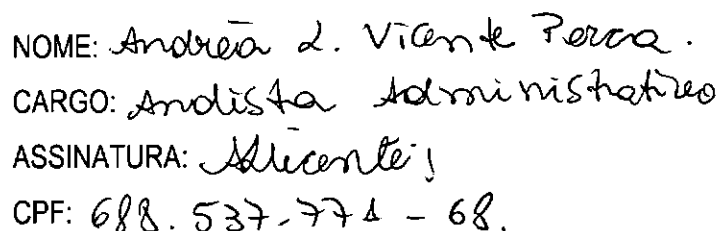 NOME: Andréa L. Vicente Perca.
CARGO: Analista Administrativo
ASSINATURA: AVicente
CPF: 688.537.771-68.